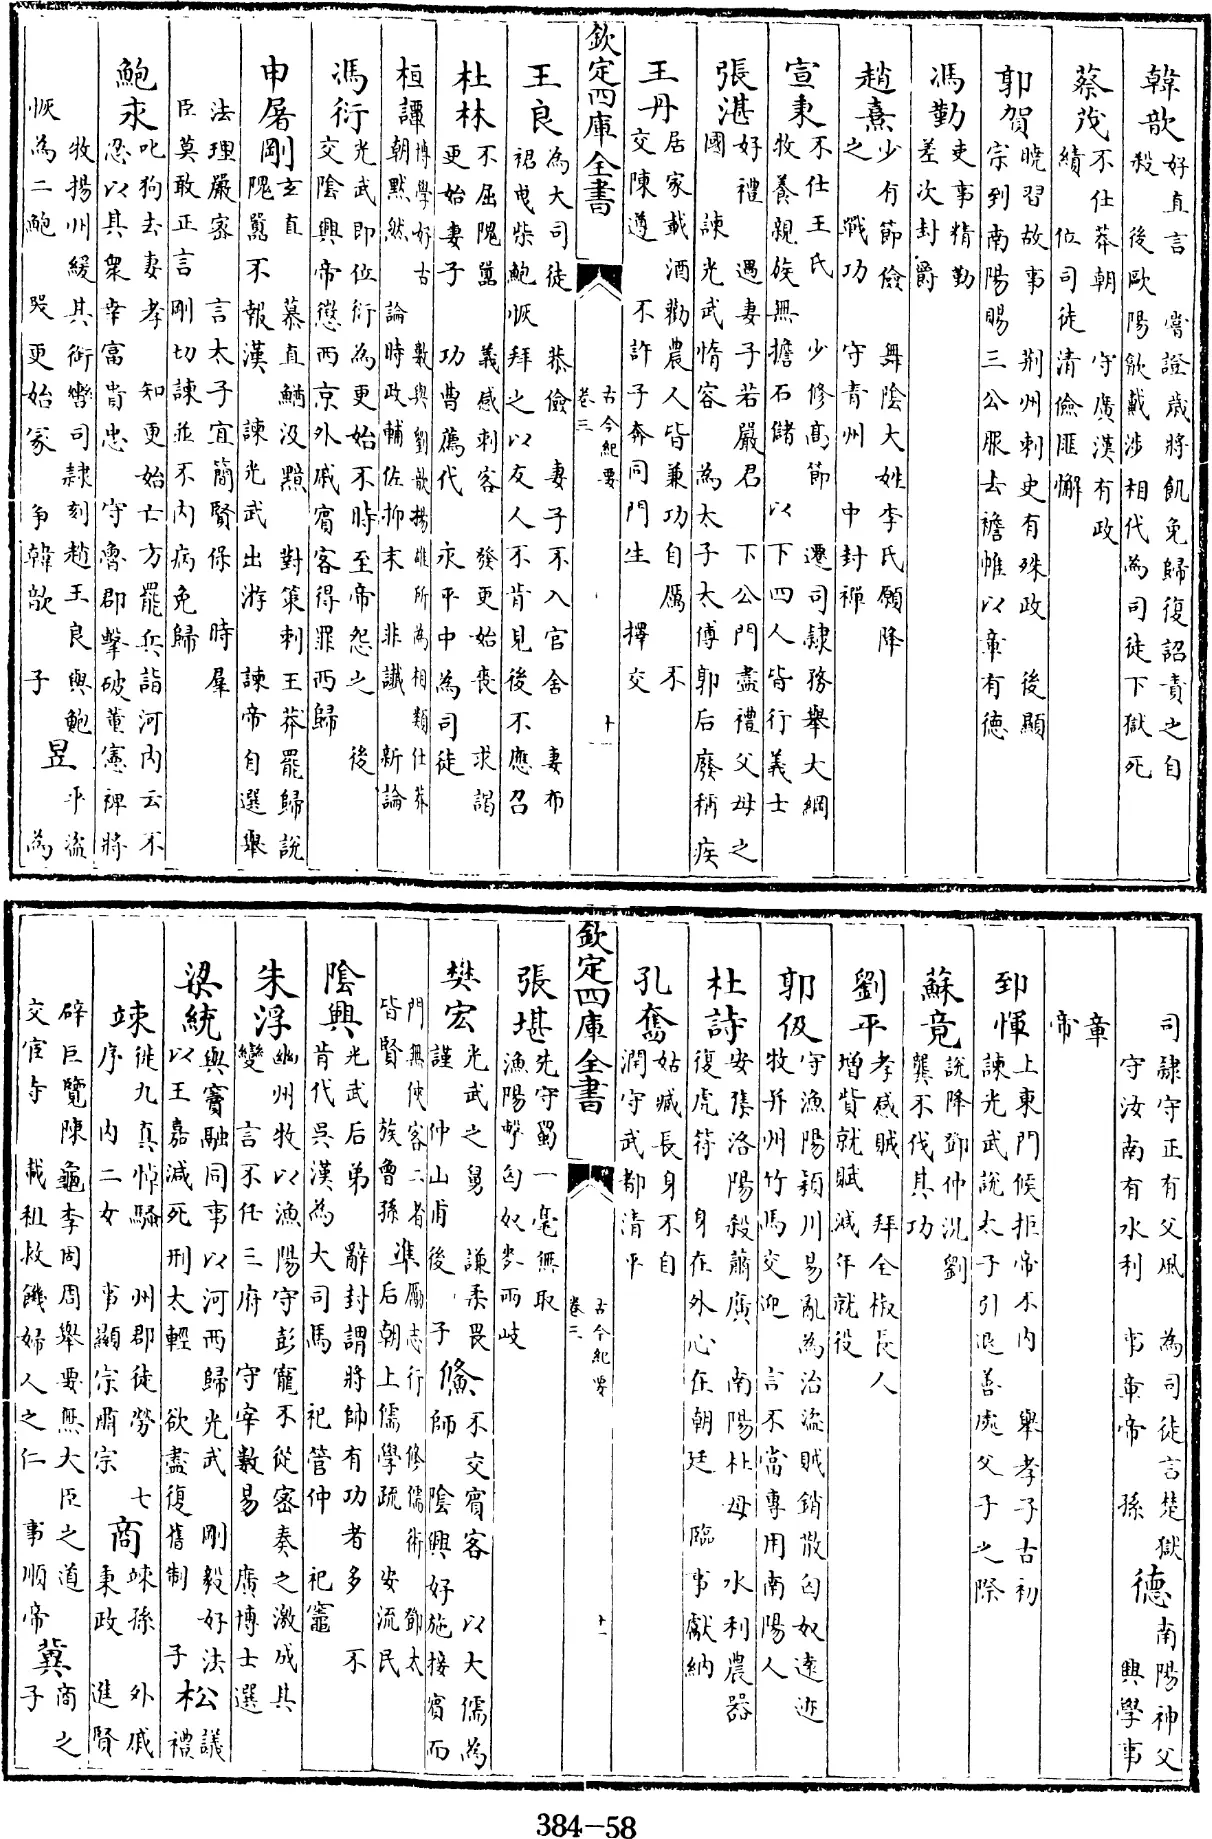 韓歆 好直言 嘗證歲將飢免歸復詔責之自
殺 後歐陽歙戴涉相代為司徒下獄死
蔡茂 不仕莽朝 守廣漢有政
績 位司徒清儉匪懈
郭賀 曉習故事 荆州刺史有殊政 後顯
宗到南陽賜三公服去襜帷以章有德
馮勤 吏事精勤
差次封爵
趙熹 少有節儉 舞陰大姓李氏願降
之 戰功 守青州 中封禪
宣秉 不仕王氏 少修高節 遷司隸務舉大綱
牧養親族無擔石儲 以下四人皆行義士
張湛 好禮 遇妻子若嚴君 下公門盡禮父母之
國 諫光武惰容 為太子太傅郭后廢稱疾
王丹 居家載酒勸農人皆兼功自厲 不
交陳遵 不許子奔同門生 擇交
欽定四庫全書
古今紀要
卷三
十一
王良 為大司徒 恭儉 妻子不入官舍 妻布
裙曳柴鮑恢拜之以友人不肯見後不應召
杜林 不屈隗囂 義感刺客 發更始喪 求謁
更始妻子 功曹薦代 永平中為司徒
桓譚 博學好古 數與劉歆揚雄所為相類仕莽
朝黙然 論時政輔佐抑末 非讖 新論
馮衍 光武即位衍為更始不時至帝怨之 後
交陰興帝懲西京外戚賓客得罪西歸
申屠剛 玄直 慕直鰌汲黯 對策刺王莽罷歸說
隗囂不報漢 諫光武出游 諫帝自選舉
法理嚴密 言太子宜簡賢保 時羣
臣莫敢正言剛切諫並不內病免歸
鮑永 叱狗去妻孝 知更始亡方罷兵詣河内云不
忍以其衆幸富貴忠 守魯郡擊破董憲裨將
牧揚州緩其銜轡司隸刻趙王良與鮑
恢為二鮑 哭更始冢 争韓歆 子
昱 平盜
為
司隸守正有父風 為司徒言楚獄
守汝南有水利 事章帝 孫
德 南陽神父
興學事
章
帝
郅惲 上東門候拒帝不内 舉孝子古初
諫光武說太子引退善處父子之際
蘇竟 說降鄧仲況劉
龔不伐其功
劉平 孝感賊 拜全椒長人
增貲就賦減年就役
郭伋 守漁陽潁川易亂為治盜賊銷散匈奴遠迹
牧并州竹馬交迎 言不當專用南陽人
杜詩 安集洛陽殺蕭廣 南陽杜母 水利農器
復虎符 身在外心在朝廷 臨事獻納
孔奮 姑臧長身不自
潤守武都清平
欽定四庫全書
古今紀要
卷三
十一
張堪 先守蜀一毫無取
漁陽擊匈奴麥兩岐
樊宏 光武之舅 謙柔畏
謹 仲山甫後 子
鯈 不交賓客 以大儒為
師 陰興好施接賓而
門無俠客二者
皆賢 族曾孫
準 勵志行 修儒術 鄧太
后朝上儒學疏 安流民
陰興 光武后弟 辭封謂將帥有功者多 不
肯代吳漢為大司馬 祀管仲 祀竈
朱浮 幽州牧以漁陽守彭寵不從密奏之激成其
變 言不任三府 守宰數易 廣博士選
梁統 與竇融同事以河西歸光武 剛毅好法
以王嘉減死刑太輕 欲盡復舊制 子
松 議
禮
竦 徙九真悼騷 州郡徒勞 七
序 内二女 事顯宗肅宗
商 竦孫 外戚
秉政 進賢
辟巨覽陳龜李固周舉要無大臣之道
交宦寺 載租救饑婦人之仁 事順帝
冀 商之
子
384-58